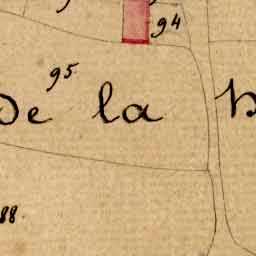 94
95
De la
88.